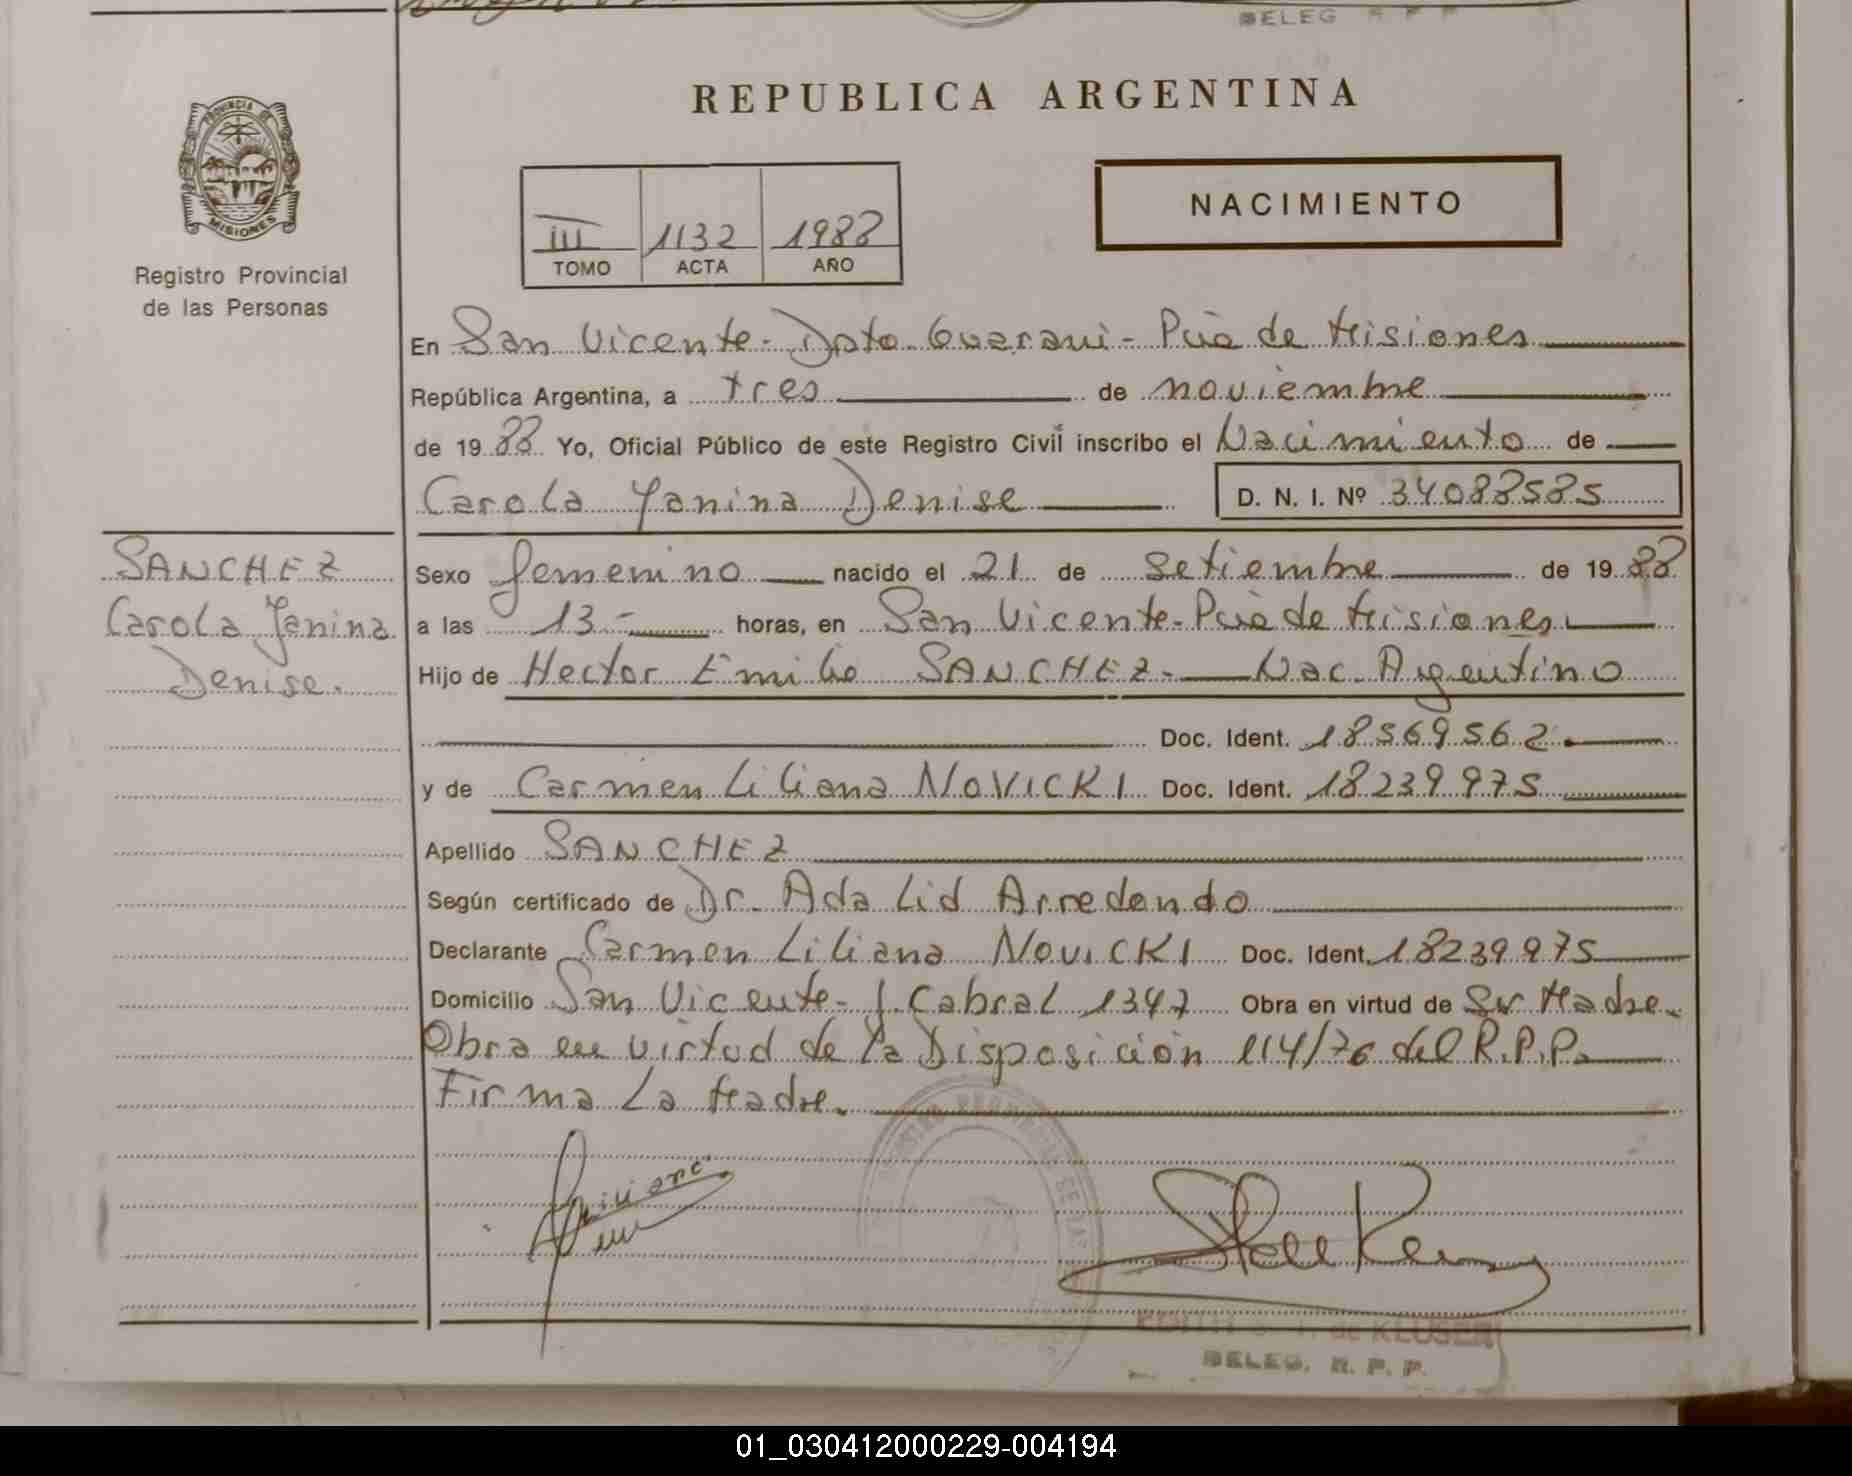 DELEG R P P
REPUBLICA ARGENTINA
PROVINCIA DE
MISIONES
NACIMIENTO
III 1132 1988
TOMO ACTA AÑO
Registro Provincial
de las Personas
En San Vicente - Dpto. Guarani - Pcia de Misiones
República Argentina, a tres de noviembre
de 1988 Yo, Oficial Público de este Registro Civil inscribo el Nacimiento de
Carola Yanina Denise D. N. I. Nº 34088585
SANCHEZ
Carola Yanina
Denise.
Sexo femenino nacido el 21 de setiembre de 1988
a las 13- horas, en San Vicente - Pcia de Misiones
Hijo de Hector Emilio SANCHEZ - Nac. Argentino
Doc. Ident. 18569562.
y de Carmen Liliana NOVICKI Doc. Ident. 18239975
Apellido SANCHEZ
Según certificado de Dr. Ada Lid Arredondo
Declarante Carmen Liliana NOVICKI Doc. Ident. 18239975
Domicilio San Vicente - J. Cabral 1347 Obra en virtud de Su Madre.
Obra en virtud de la Disposición 114/76 del R.P.P.
Firma La Madre.
de KLUSER
DELEG. R. P. P.
01_030412000229-004194